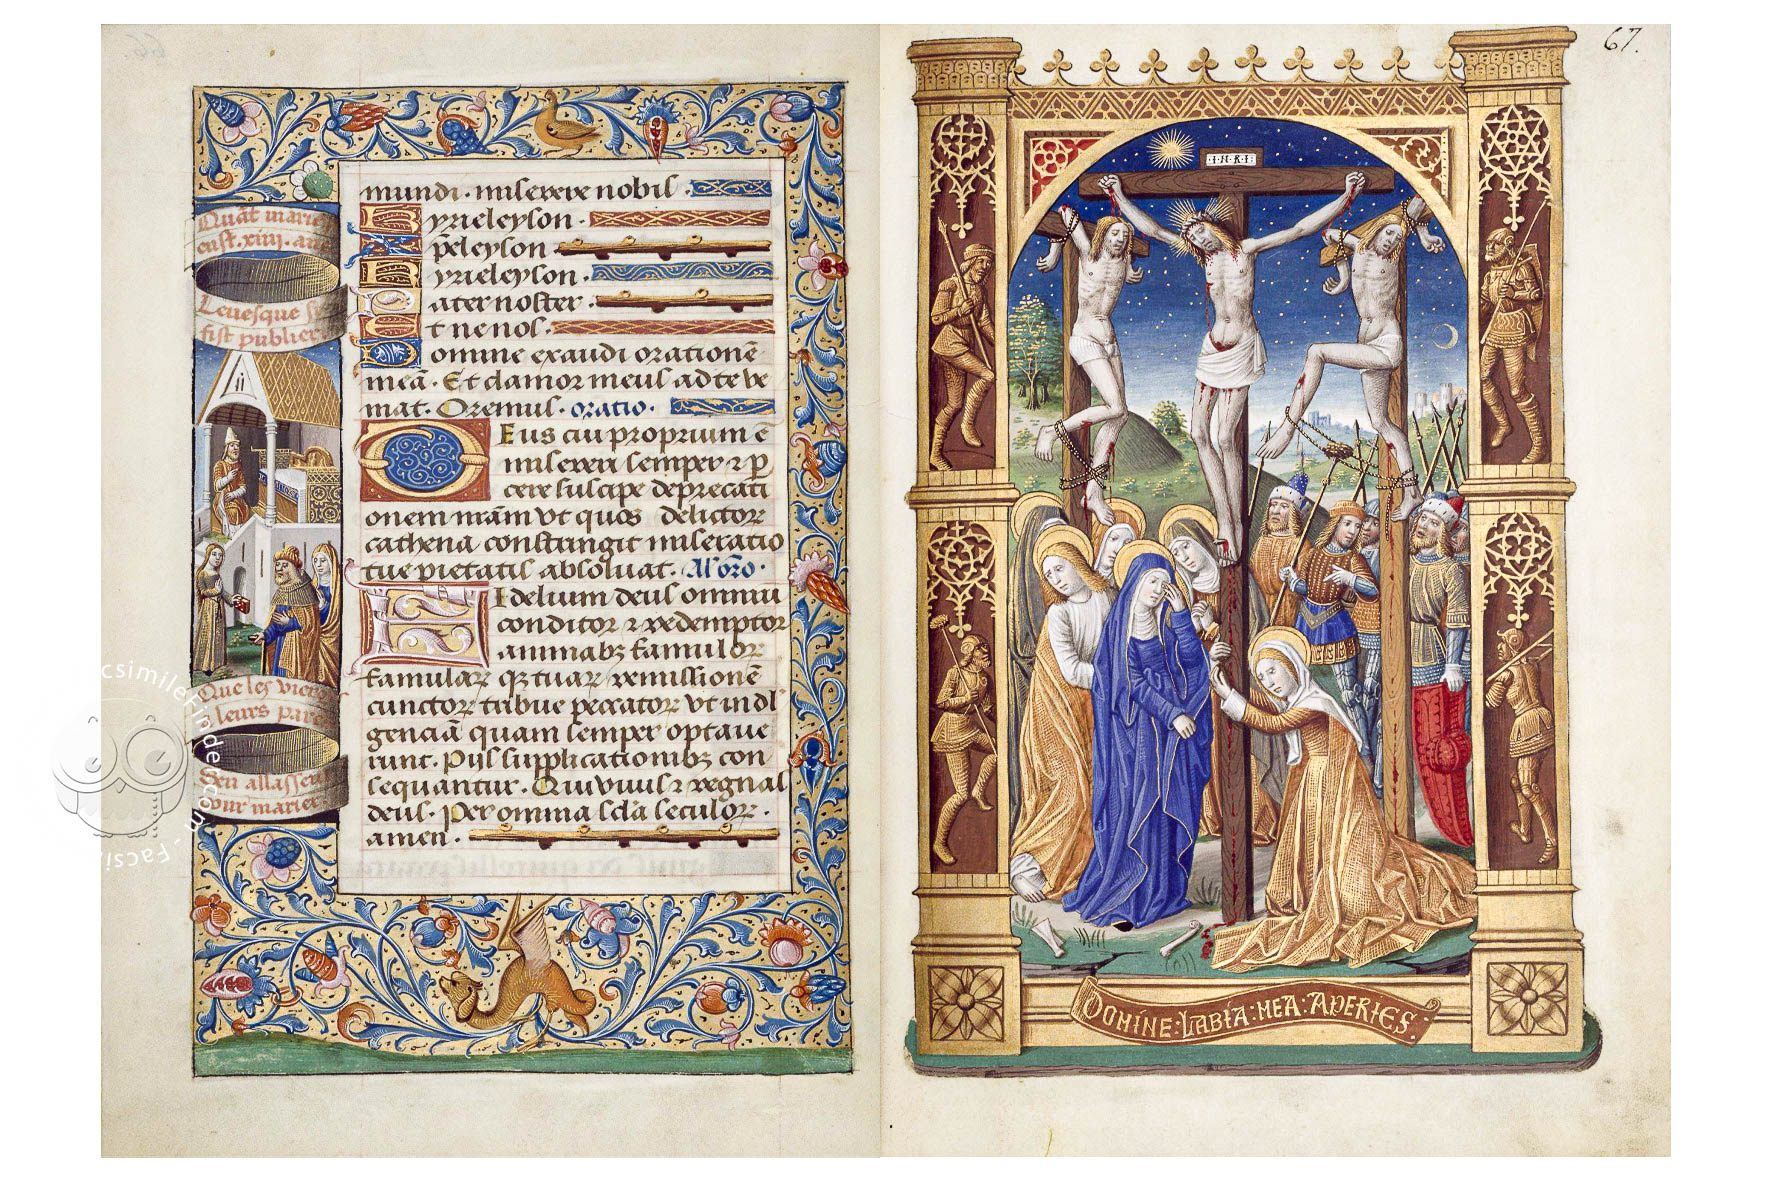 67.
Quāt marie
eust .xiiii. ans
Leuesque si
fist publier
Que les vierg
leurs pare
Sen allassent
pour marier
mundi. miserere nobis.
Kyrieleyson.
Xp̄eleyson
Kyrieleyson.
Pater noster.
Et ne nos.
Domine exaudi orationē
meā. Et clamor meus ad te ve
niat. Oremus. oratio.
Deus cui proprium ē
misereri semper ⁊ p
cere suscipe deprecati
onem nr̄am vt quos delictoꝝ
cathena constringit miseratio
tue pietatis absoluat. Al' orō.
Fidelium deus omniū
conditor ⁊ redemptor
animabꝫ famuloꝝ
famulaꝝ qꝫ tuaꝝ remissionē
cunctoꝝ tribue peccatoꝝ vt indl
genciā quam semper optaue
runt. Pijs supplicationibꝫ con
sequantur. Qui viuis ⁊ regnas
deus. Per omnia scl̄a seculoꝝ.
amen.
I.N.R.I.
DOMINE: LABIA: MEA: APERIES.
FacsimileFinder.com